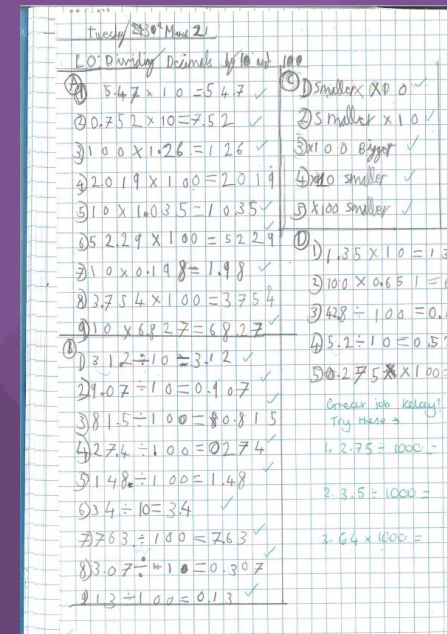 Tuesday 30th March 21
LO: Dividing Decimals by 10 and 100
A
1) 5.47 × 10 = 54.7 ✓
2) 0.752 × 10 = 7.52 ✓
3) 100 × 1.26 = 126 ✓
4) 20.19 × 100 = 2019 ✓
5) 10 × 1.035 = 10.35 ✓
6) 52.29 × 100 = 5229 ✓
7) 10 × 0.198 = 1.98 ✓
8) 3.754 × 100 = 375.4
9) 10 × 6.827 = 68.27 ✓
B
1) 31.2 ÷ 10 = 3.12 ✓
2) 9.07 ÷ 10 = 0.907 ✓
3) 81.5 ÷ 100 = 0.815 ✓
4) 27.4 ÷ 100 = 0.274 ✓
5) 148 ÷ 100 = 1.48 ✓
6) 34 ÷ 10 = 3.4 ✓
7) 763 ÷ 100 = 7.63 ✓
8) 3.07 ÷ 10 = 0.307 ✓
9) 13 ÷ 100 = 0.13 ✓
C
1) Smaller ✓
2) Smaller × 10 ✓
3) ×100 Bigger ✓
4) ×10 smaller ✓
5) ×100 smaller ✓
D
1) 1.35 × 10 = 13
2) 100 × 0.651 =
3) 428 ÷ 100 =
4) 5.2 ÷ 10 = 0.5
5) 0.275 × 100 =
Great job Kelsey!
Try these →
1. 2.75 ÷ 1000 =
2. 3.5 ÷ 1000 =
3. 64 × 1000 =